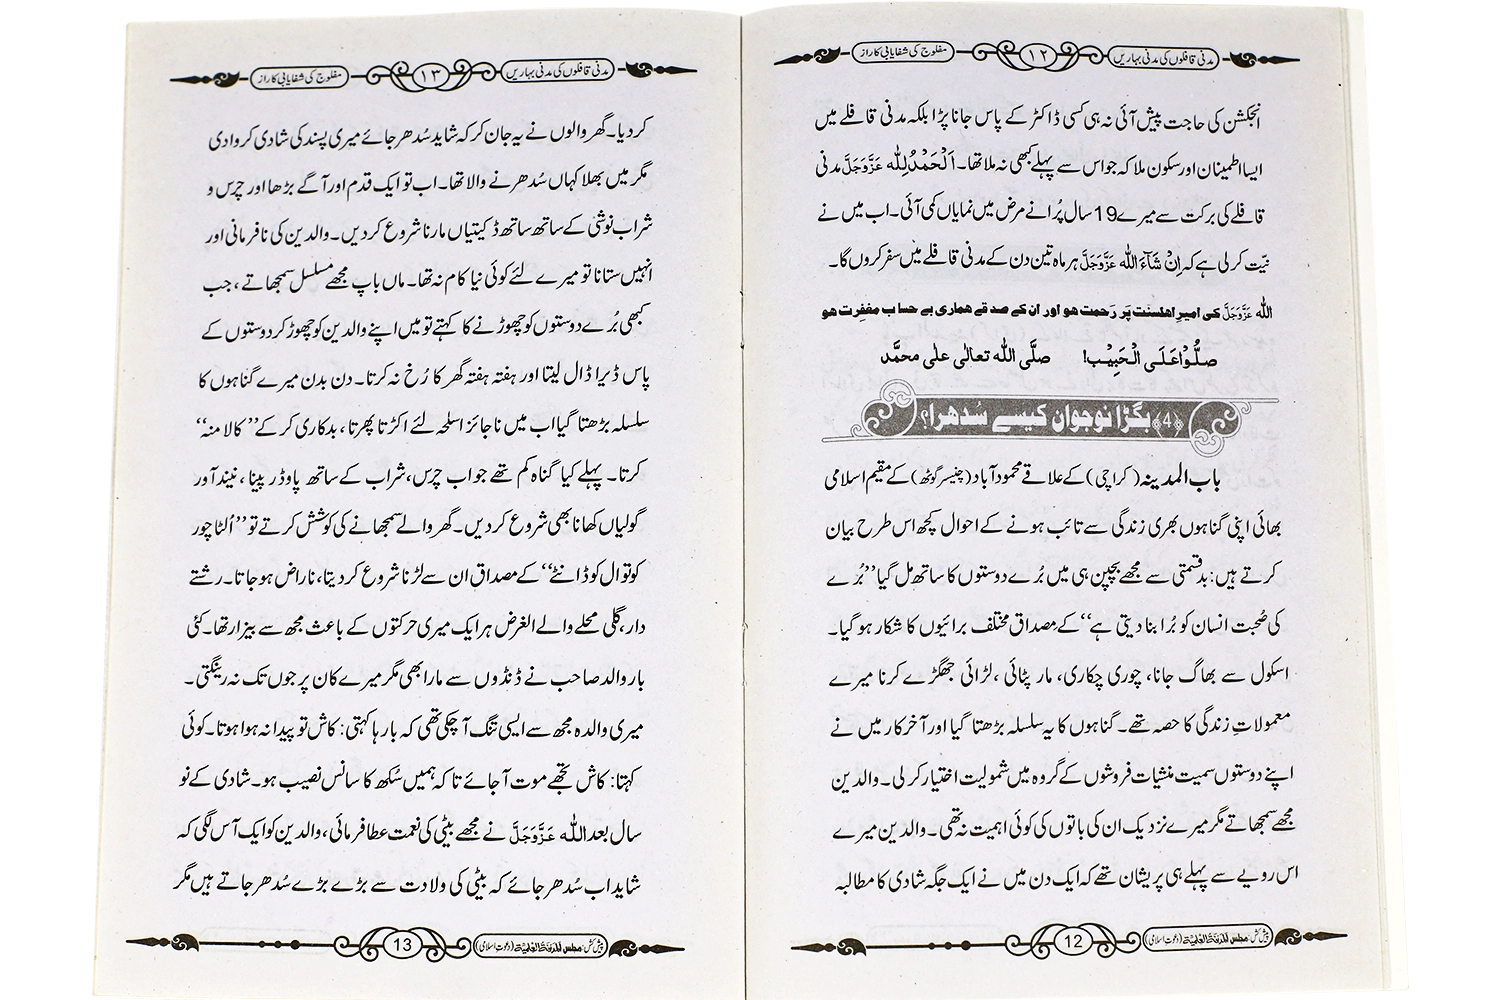 مدنی قافلوں کی مدنی بہاریں ۱۲ مفلوج کی شفایابی کا راز
انجکشن کی حاجت پیش آئی نہ ہی کسی ڈاکٹر کے پاس جانا پڑا بلکہ مدنی قافلے میں
ایسا اطمینان اور سکون ملا کہ جو اس سے پہلے کبھی نہ ملا تھا۔ اَلْحَمْدُلِلّٰه عَزَّوَجَلَّ مدنی
قافلے کی برکت سے میرے 19 سال پُرانے مرض میں نمایاں کمی آئی۔ اب میں نے
نیّت کر لی ہے کہ اِنْ شَآءَ اللّٰه عَزَّوَجَلَّ ہر ماہ تین دن کے مدنی قافلے میں سفر کروں گا۔
اللّٰه عَزَّوَجَلَّ کی امیرِ اهلسنّت پَر رَحمت هو اور ان کے صدقے هماری بے حساب مغفِرت هو
صَلُّوْاعَلَی الْحَبِیْب! صلَّی اللّٰه تعالٰی علٰی محمَّد
﴿4﴾ بگڑا نوجوان کیسے سُدھرا؟
باب المدینہ (کراچی) کے علاقے محمود آباد (چنیسر گوٹھ) کے مقیم اسلامی
بھائی اپنی گناہوں بھری زندگی سے تائب ہونے کے احوال کچھ اس طرح بیان
کرتے ہیں: بدقسمتی سے مجھے بچپن ہی میں بُرے دوستوں کا ساتھ مل گیا ’’بُرے
کی صُحبت انسان کو بُرا بنا دیتی ہے‘‘ کے مصداق مختلف برائیوں کا شکار ہو گیا۔
اسکول سے بھاگ جانا، چوری چکاری، مار پٹائی، لڑائی جھگڑے کرنا میرے
معمولاتِ زندگی کا حصہ تھے۔ گناہوں کا یہ سلسلہ بڑھتا گیا اور آخر کار میں نے
اپنے دوستوں سمیت منشیات فروشوں کے گروہ میں شمولیت اختیار کر لی۔ والدین
مجھے سمجھاتے مگر میرے نزدیک ان کی باتوں کی کوئی اہمیت نہ تھی۔ والدین میرے
اس رویے سے پہلے ہی پریشان تھے کہ ایک دن میں نے ایک جگہ شادی کا مطالبہ
پیش کش: مجلس المدینۃ العلمیۃ (دعوتِ اسلامی) 12
مدنی قافلوں کی مدنی بہاریں ۱۳ مفلوج کی شفایابی کا راز
کر دیا۔ گھر والوں نے یہ جان کر کہ شاید سُدھر جائے میری پسند کی شادی کروا دی
مگر میں بھلا کہاں سُدھرنے والا تھا۔ اب تو ایک قدم اور آگے بڑھا اور چرس و
شراب نوشی کے ساتھ ساتھ ڈکیتیاں مارنا شروع کر دیں۔ والدین کی نافرمانی اور
انہیں ستانا تو میرے لئے کوئی نیا کام نہ تھا۔ ماں باپ مجھے مسلسل سمجھاتے، جب
کبھی بُرے دوستوں کو چھوڑنے کا کہتے تو میں اپنے والدین کو چھوڑ کر دوستوں کے
پاس ڈیرا ڈال لیتا اور ہفتہ ہفتہ گھر کا رُخ نہ کرتا۔ دن بدن میرے گناہوں کا
سلسلہ بڑھتا گیا اب میں ناجائز اسلحہ لئے اکڑتا پھرتا، بدکاری کر کے ’’کالا منہ‘‘
کرتا۔ پہلے کیا گناہ کم تھے جو اب چرس، شراب کے ساتھ پاوڈر پینا، نیند آور
گولیاں کھانا بھی شروع کر دیں۔ گھر والے سمجھانے کی کوشش کرتے تو ’’اُلٹا چور
کوتوال کو ڈانٹے‘‘ کے مصداق ان سے لڑنا شروع کر دیتا، ناراض ہو جاتا۔ رشتے
دار، گلی محلے والے الغرض ہر ایک میری حرکتوں کے باعث مجھ سے بیزار تھا۔ کئی
بار والد صاحب نے ڈنڈوں سے مارا بھی مگر میرے کان پر جوں تک نہ رینگتی۔
میری والدہ مجھ سے ایسی تنگ آ چکی تھی کہ بارہا کہتی: کاش تو پیدا نہ ہوا ہوتا۔ کوئی
کہتا: کاش تجھے موت آ جائے تا کہ ہمیں سُکھ کا سانس نصیب ہو۔ شادی کے نو
سال بعد اللّٰه عَزَّوَجَلَّ نے مجھے بیٹی کی نعمت عطا فرمائی، والدین کو ایک آس لگی کہ
شاید اب سُدھر جائے کہ بیٹی کی ولادت سے بڑے بڑے سُدھر جاتے ہیں مگر
پیش کش: مجلس المدینۃ العلمیۃ (دعوتِ اسلامی) 13